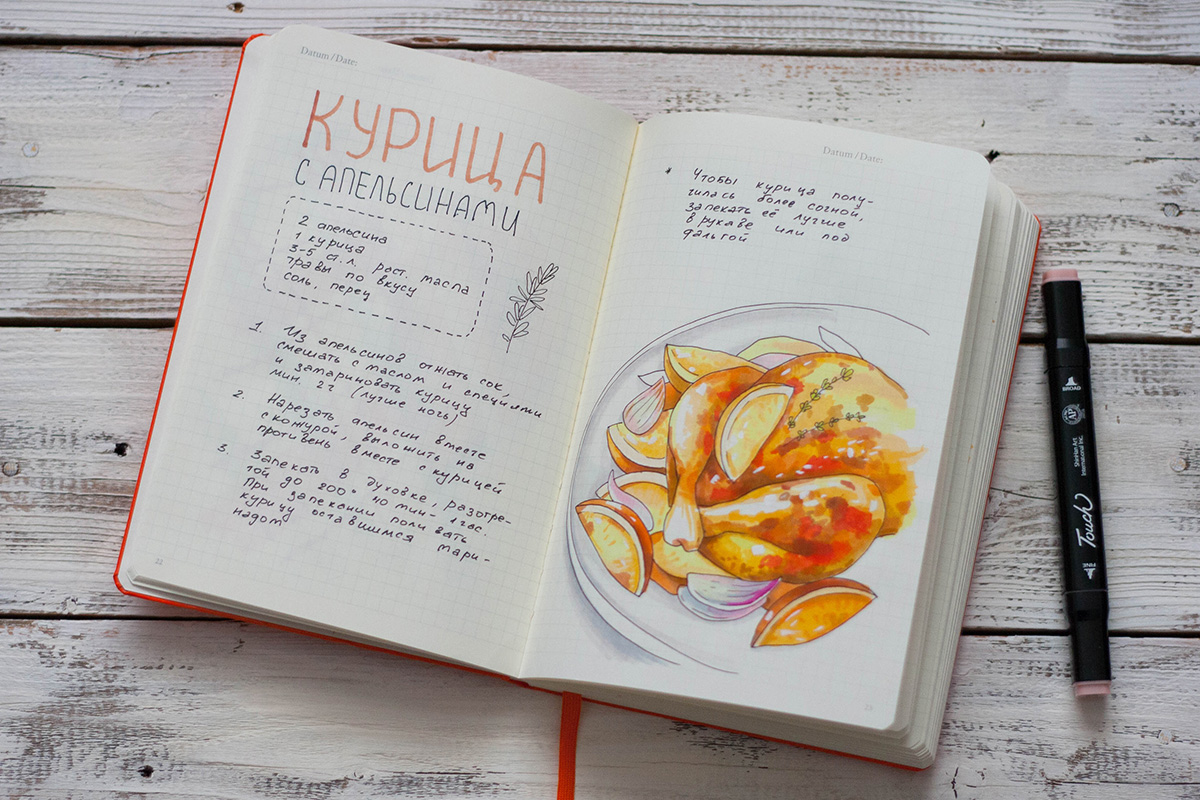 Datum / Date:
КУРИЦА
С АПЕЛЬСИНАМИ
2 апельсина
1 курица
3-5 ст. л. раст. масла
травы по вкусу
соль, перец
1. Из апельсинов отжать сок,
смешать с маслом и специями
и замариновать курицу
мин. 2г (лучше ночь)
2. Нарезать апельсин вместе
с кожурой, выложить на
противень вместе с курицей
3. Запекать в духовке, разогре-
той до 200° 40 мин - 1 час.
При запекании поливать
курицу оставшимся мари-
надом
22
Datum / Date:
* Чтобы курица полу-
чилась более сочной,
запекать её лучше
в рукаве или под
фальгой
23
BROAD
AP
ShinHan Art
International Inc.
Touch
FINE